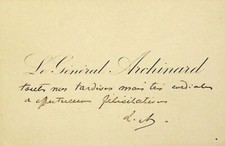 Le Général Archinard
toutes nos tardives mais très cordiales
et affectueuses félicitations
L. A.